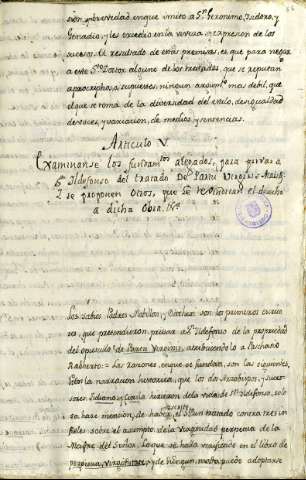 sion, y brevedad en que imitó a Sn. Geronimo, Isidoro, y
Genadio, y les excedio en la virtud, y expresion de los
sucesos. El resultado de estas premisas, es que para negar
a este Sto. Dotor alguno de los tratados, que se reputan
apocryphos, o supuestos ningun argumto. mas debil, que
el que se toma de la diversidad del estilo, desigualdad
de voces, y variacion, de medios, y sentencias.
Articulo V.
Examinanse los fundamtos. alegados, para privar a
Sn. Ildefonso del tratado De Partu Virginis
se proponen otros, que se vindican el derecho
a dicha Obra.
Los sabios Padres Mabillon, y Dacheri son los primeros
que pretendieron privar a Sn. Ildefonso de la propiedad
del opusculo de Partu Virginis, atribuiendolo a Paschasio
Radberto: las razones, en que se fundan, son las siguientes.
Ser la narracion historica, que los dos Arzobispos, y
Juliano, y Cixila hizieron de la vida de Sn. Ildefonso, solo
se hace mencion, de haber escrito el Sto. un tratado contra tres in
fieles sobre el asumpto de la virginidad perpetua de la
Madre del Señor. Lo que se halla verificado en el libro de
perpetua virginitate, y de ningun modo puede adoptarse